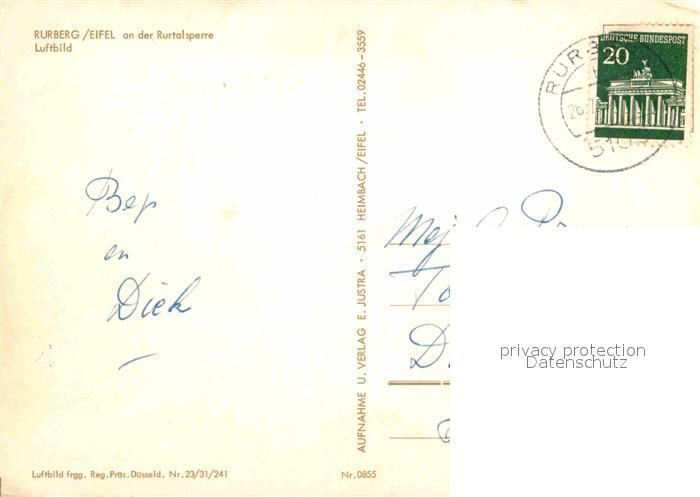 RURBERG /EIFEL an der Rurtalsperre
Luftbild
Bep
en
Diek
Luftbild frgg. Reg. Präs. Düsseld. Nr. 23/31/241
Nr. 0855
AUFNAHME U. VERLAG E. JUSTRA · 5161 HEIMBACH/EIFEL · TEL. 02446-3559
DEUTSCHE BUNDESPOST
20
Mej
privacy protection
Datenschutz